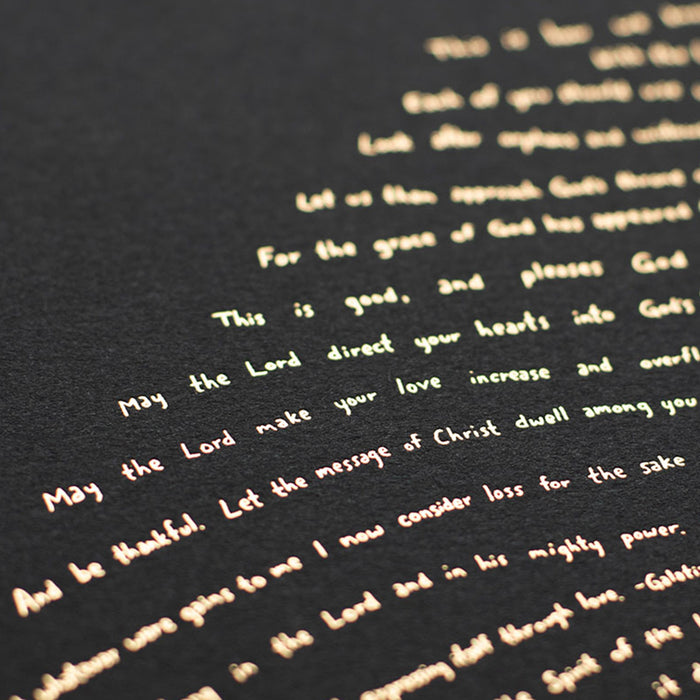 This is how we
with the
Each of you should use
Look after orphans and
Let us then approach God's throne
For the grace of God has appeared
This is good, and pleases God
May the Lord direct your hearts into God's
May the Lord make your love increase and
And be thankful. Let the message of Christ dwell among you
whatever were gains to me I now consider loss for the sake
in the Lord and in his mighty power.
expressing itself through love. -
Spirit of the